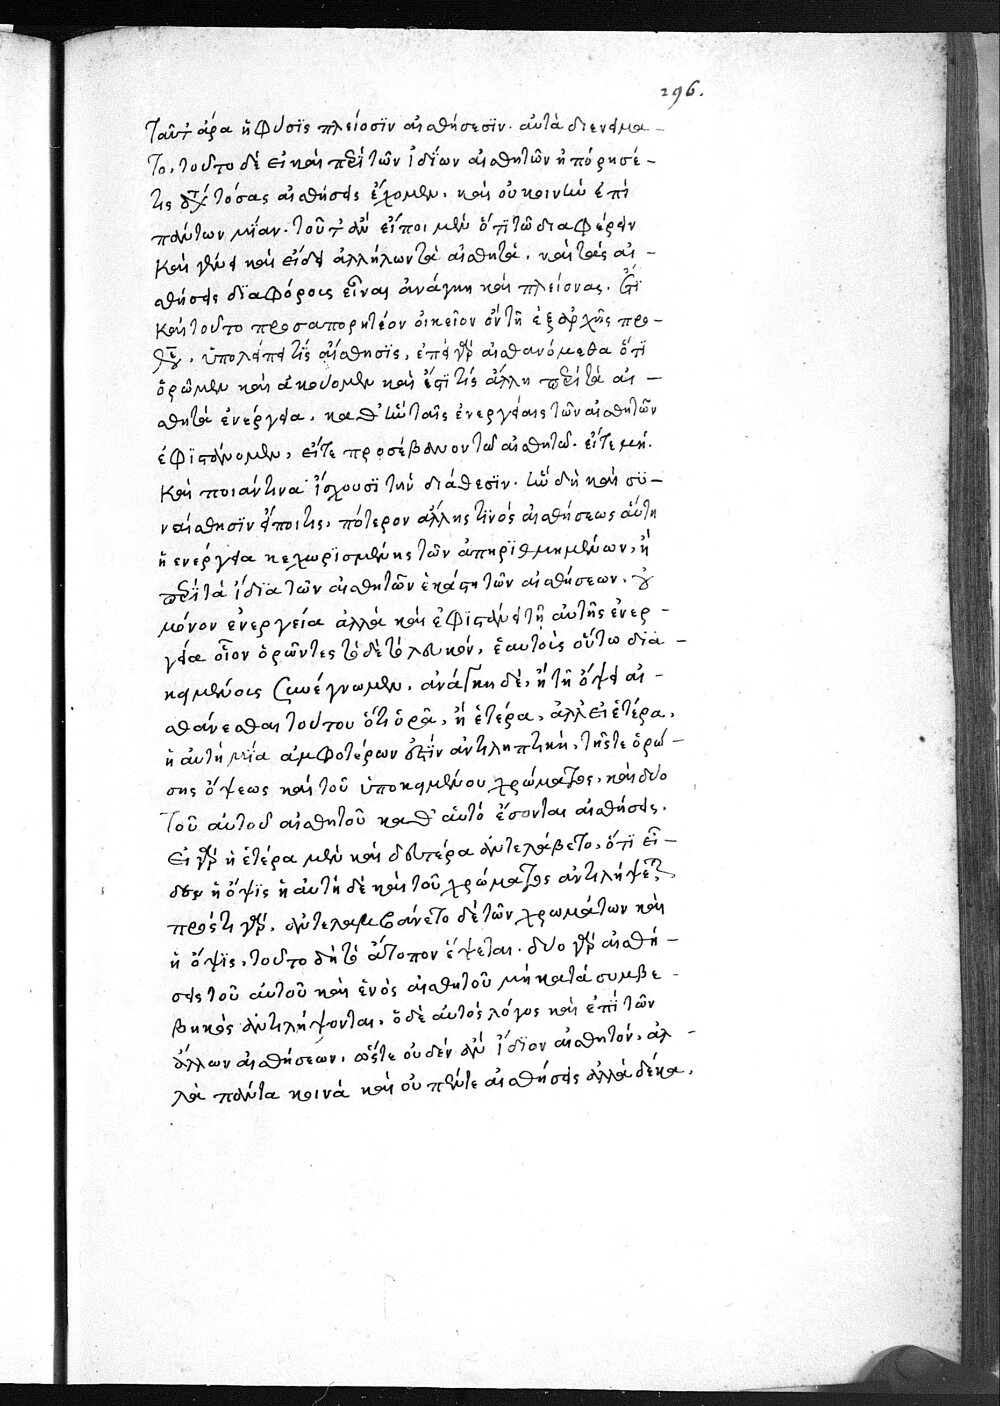 296.
ταῦτ' ἄρα ἡ φύσϊς πλείοσϊν αἰσθήσεσϊν. αὐτὰ διενείμα–
το, τοῦτο δὲ εἰ καὶ περὶ τῶν ἰδίων αἰσθητῶν ἠπόρησέ–
τις τοσας αἰσθήσεις ἔχομεν, καὶ οὐ κοινὴν ἐπὶ
πάντων μίαν. τοῦτ' ἂν εἴποι μὲν ὅτι τῶ διαφέρειν
καὶ γένει καὶ εἴδει ἀλλήλων τὰ αἰσθητὰ, καὶ τὰς αἰ–
σθήσεις διαφόροις εἶναι ἀνάγκη καὶ πλείονας. ἔτι
καὶ τοῦτο προσαπορητέον οἰκεῖον ὂν τῆ ἐξ ἀρχῆς προ–
, ὑπολείπει τίς αἴσθησϊς, ἐπεὶ γὰρ αἰσθανόμεθα ὅτϊ
ὁρῶμεν καὶ ἀκούομεν καὶ ἔστι τίς ἄλλη περὶ τὰ αἰ–
σθητὰ ἐνέργεια, καθ' ἣν ταῖς ἐνεργείαις τῶν αἰσθητῶν
ἐφϊστάνομεν, εἴτε προσέβαλλον τῶ αἰσθητῶ. εἴτε μή.
καὶ ποιάν τινα ἴσχουσϊ τὴν διάθεσϊν. ἣν δὴ καὶ συ–
ναίσθησϊν εἴποι τις, πότερον ἄλλης τϊνὸς αἰσθήσεως αὕτη
ἡ ἐνέργεια κεχωρϊσμένης τῶν ἀπηρϊθμημένων, ἢ
περὶ τὰ ἴδϊα τῶν αἰσθητῶν ἑκάστη τῶν αἰσθήσεων. οὐ
μόνον ἐνεργεία ἀλλὰ καὶ ἐφϊστάνει τῆ αὐτῆς ἐνερ–
γεία οἷον ὁρῶντες τόδε τὸ λευκόν, ἑαυτοῖς οὕτω δια–
κειμένοις συνέγνωμεν. ἀνάγκη δὲ, ἢ τῆ ὄψει αἰ–
σθάνεσθαι τούτου ὅτι ὁρᾶ, ἢ ἑτέρα, ἀλλ' εἰ ἑτέρα,
ἡ αὐτὴ μία ἀμφοτέρων ἐστὶν ἀντιληπτικὴ, τῆς τε ὁρώ–
σης ὄψεως καὶ τοῦ ὑποκειμένου χρώματος, καὶ δύο
τοῦ αὐτοῦ αἰσθητοῦ καθ' αὑτό ἔσονται αἰσθήσεις.
εἰ γὰρ ἡ ἑτέρα μὲν καὶ δευτέρα ἀντελάβετο, ὅτϊ εἶ–
δεν ἡ ὄψϊς ἡ αὐτὴ δὲ καὶ τοῦ χρώματος ἀντιλήψεται
πρός τι γὰρ. ἀντελαμβάνετο δὲ τῶν χρωμάτων καὶ
ἡ ὄψϊς, τοῦτο δὴ τὸ ἄτοπον ἕψεται. δύο γὰρ αἰσθή–
σεις τοῦ αὐτοῦ καὶ ἑνὸς αἰσθητοῦ μὴ κατὰ συμβε–
βηκὸς ἀντιλήψονται. ὁ δὲ αὐτὸς λόγος καὶ ἐπὶ τῶν
ἄλλων αἰσθήσεων, ὥστε οὐδὲν ἂν ἴδϊον αἰσθητὸν, ἀλ–
λὰ πάντα κοινὰ καὶ οὐ πέντε αἰσθήσεις ἀλλὰ δέκα.